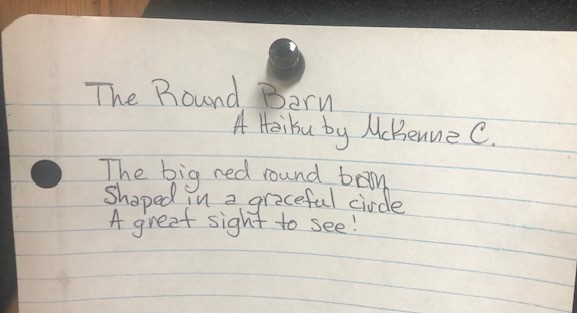 The Round Barn
A Haiku by McKenna C.
The big red round barn
Shaped in a graceful circle
A great sight to see!